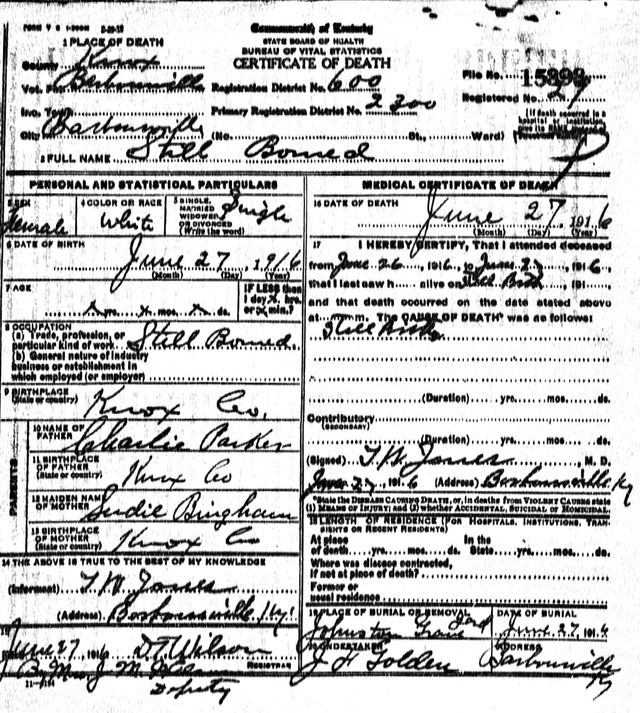 Commonwealth of Kentucky
STATE BOARD OF HEALTH
BUREAU OF VITAL STATISTICS
CERTIFICATE OF DEATH
1 PLACE OF DEATH
County Knox
Vot. Barbourville Registration District No. 600
File No. 15393
Inc. Town Primary Registration District No. 2300
Registered No. 27
City Barbourville (No. St., Ward)
(If death occurred in a hospital or institution, give its NAME
2 FULL NAME Still Borned
PERSONAL AND STATISTICAL PARTICULARS
3 SEX Female
4 COLOR OR RACE White
5 SINGLE, MARRIED WIDOWED OR DIVORCED (Write the word) Single
6 DATE OF BIRTH June 27, 1916
(Month) (Day) (Year)
7 AGE x yrs. x mos. x ds.
IF LESS than 1 day x hrs. or x min.?
8 OCCUPATION
(a) Trade, profession, or particular kind of work Still Borned.
(b) General nature of industry business or establishment in which employed (or employer)
9 BIRTHPLACE (State or country) Knox Co,
PARENTS
10 NAME OF FATHER Charlie Parker
11 BIRTHPLACE OF FATHER (State or country) Knox Co
12 MAIDEN NAME OF MOTHER Sudie Bingham
13 BIRTHPLACE OF MOTHER (State or country) Knox Co
14 THE ABOVE IS TRUE TO THE BEST OF MY KNOWLEDGE
(Informant) T W Jones
(Address) Barbourville, Ky!
15
June 27 1916 D T Wilson
REGISTRAR
By Mrs J. M.
Deputy
11-3184
MEDICAL CERTIFICATE OF DEATH
16 DATE OF DEATH June 27 1916
(Month) (Day) (Year)
17 I HEREBY CERTIFY, That I attended deceased
from June 26, 1916, to June 27, 1916,
that I last saw h alive on Still Birth, 191
and that death occurred on the date stated above
at m. The CAUSE OF DEATH* was as follows:
Still Birth
(Duration) yrs. mos. ds.
Contributory
(SECONDARY)
(Duration) yrs. mos. ds.
(Signed) T. W. Jones M. D.
June 27, 1916 (Address) Barbourville, Ky
*State the DISEASE CAUSING DEATH, or, in deaths from VIOLENT CAUSES state
(1) MEANS OF INJURY; and (2) whether ACCIDENTAL, SUICIDAL OR HOMICIDAL.
18 LENGTH OF RESIDENCE (FOR HOSPITALS, INSTITUTIONS, TRANSIENTS OR RECENT RESIDENTS)
At place of death yrs. mos. ds. In the State yrs. mos. ds.
Where was disease contracted,
If not at place of death?
Former or
usual residence
19 PLACE OF BURIAL OR REMOVAL Johnston Grave Yard
DATE OF BURIAL June 27, 1916
20 UNDERTAKER J F Golden
ADDRESS Barbourville Ky